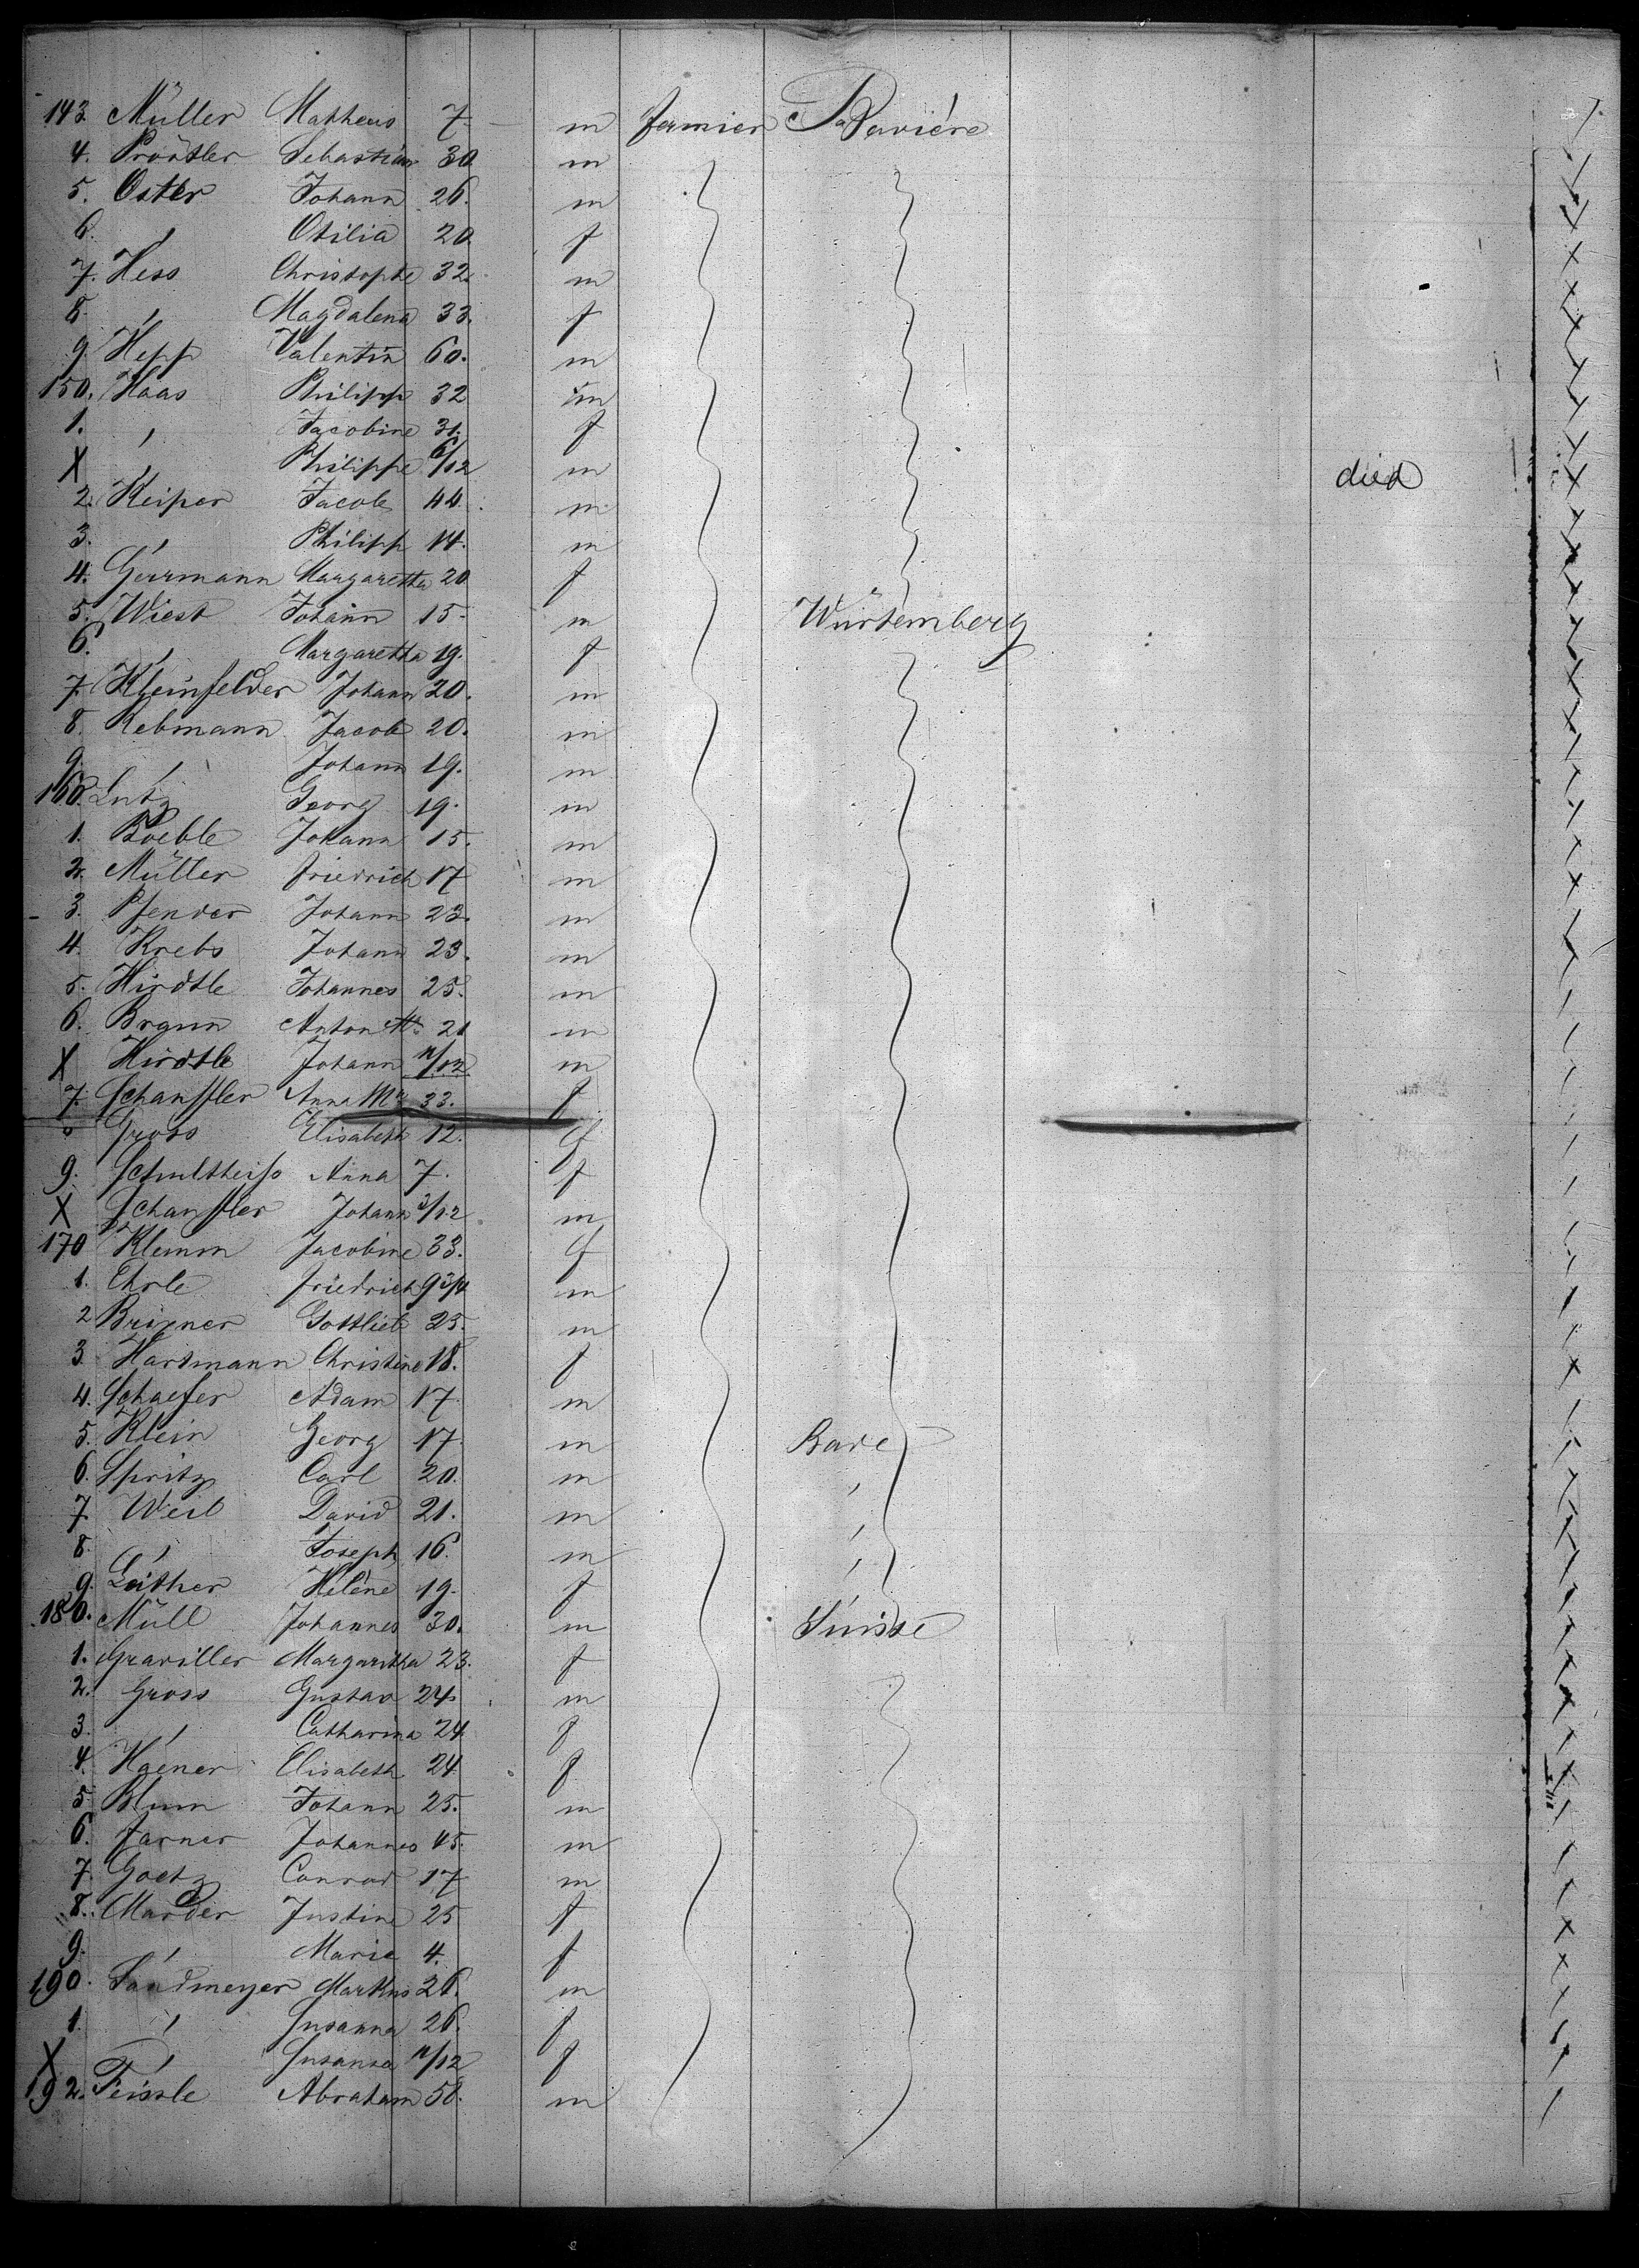 143 Müller Matheus 7 m farmier Bavière
4. Proõtler Sebastian 30 m
5. Oster Johann 26. m
6. " Otilia 20 f
7. Hess Christophe 32. m
8. " Magdalena 33. f
9. Hepp Valentin 60. m
150. Haas Philipp 32 m
1. " Jacobine 31. f
X " Philippe 6/12 m died
2. Keiper Jacob 44 m
3. " Philipp 14. m
4. Germann Margaretta 20 f
5. Wiest Johann 15 m Würtemberg
6. " Margaretta 19. f
7. Kleinfelder Johann 20. m
8. Rebmann Jacob 20. m
9. " Johann 19. m
160. Lutz Georg 19. m
1. Boeble Johann 15. m
2. Müller Friedrich 17 m
3. Pfender Johann 23. m
4. Krebs Johann 23. m
5. Hirdtle Johannes 25. m
6. Braun Anton 21 m
X Hirdtle Johann 11/12 m
7. Schanffler Anna Ma 33. f
Gross Elisabeth 12. f
9. Schultheiss Anna 7. f
X Schanffler Johann 3/12 m
170 Klemm Jacobine 33. f
1. Ehrle Friedrich 9 3/4 m
2 Brixner Gottlieb 25. m
3. Hartmann Christine 18. f
4. Schaefer Adam 17. m
5. Klein Georg 17 m Bade
6. Spritz Carl 20. m "
7. Weil David 21. m "
8. " Joseph 16. m "
9. Leither Heléne 19. f
180. Müll Johannes 30. m Suisse
1. Graviller Margaritha 23. f
2. Gross Gustav 24 m
3. " Catharina 24 f
4. Hgener Elisabeth 24 f
5. Blum Johann 25. m
6. Farner Johannes 45. m
7. Goetz Conrad 17 m
8. Marder Justine 25 f
9. " Marie 4. f
190. Sandmeyer Markus 26. m
1. " Susanna 26. f
X " Susanna 11/12 f
192. Feissle Abraham 58. m